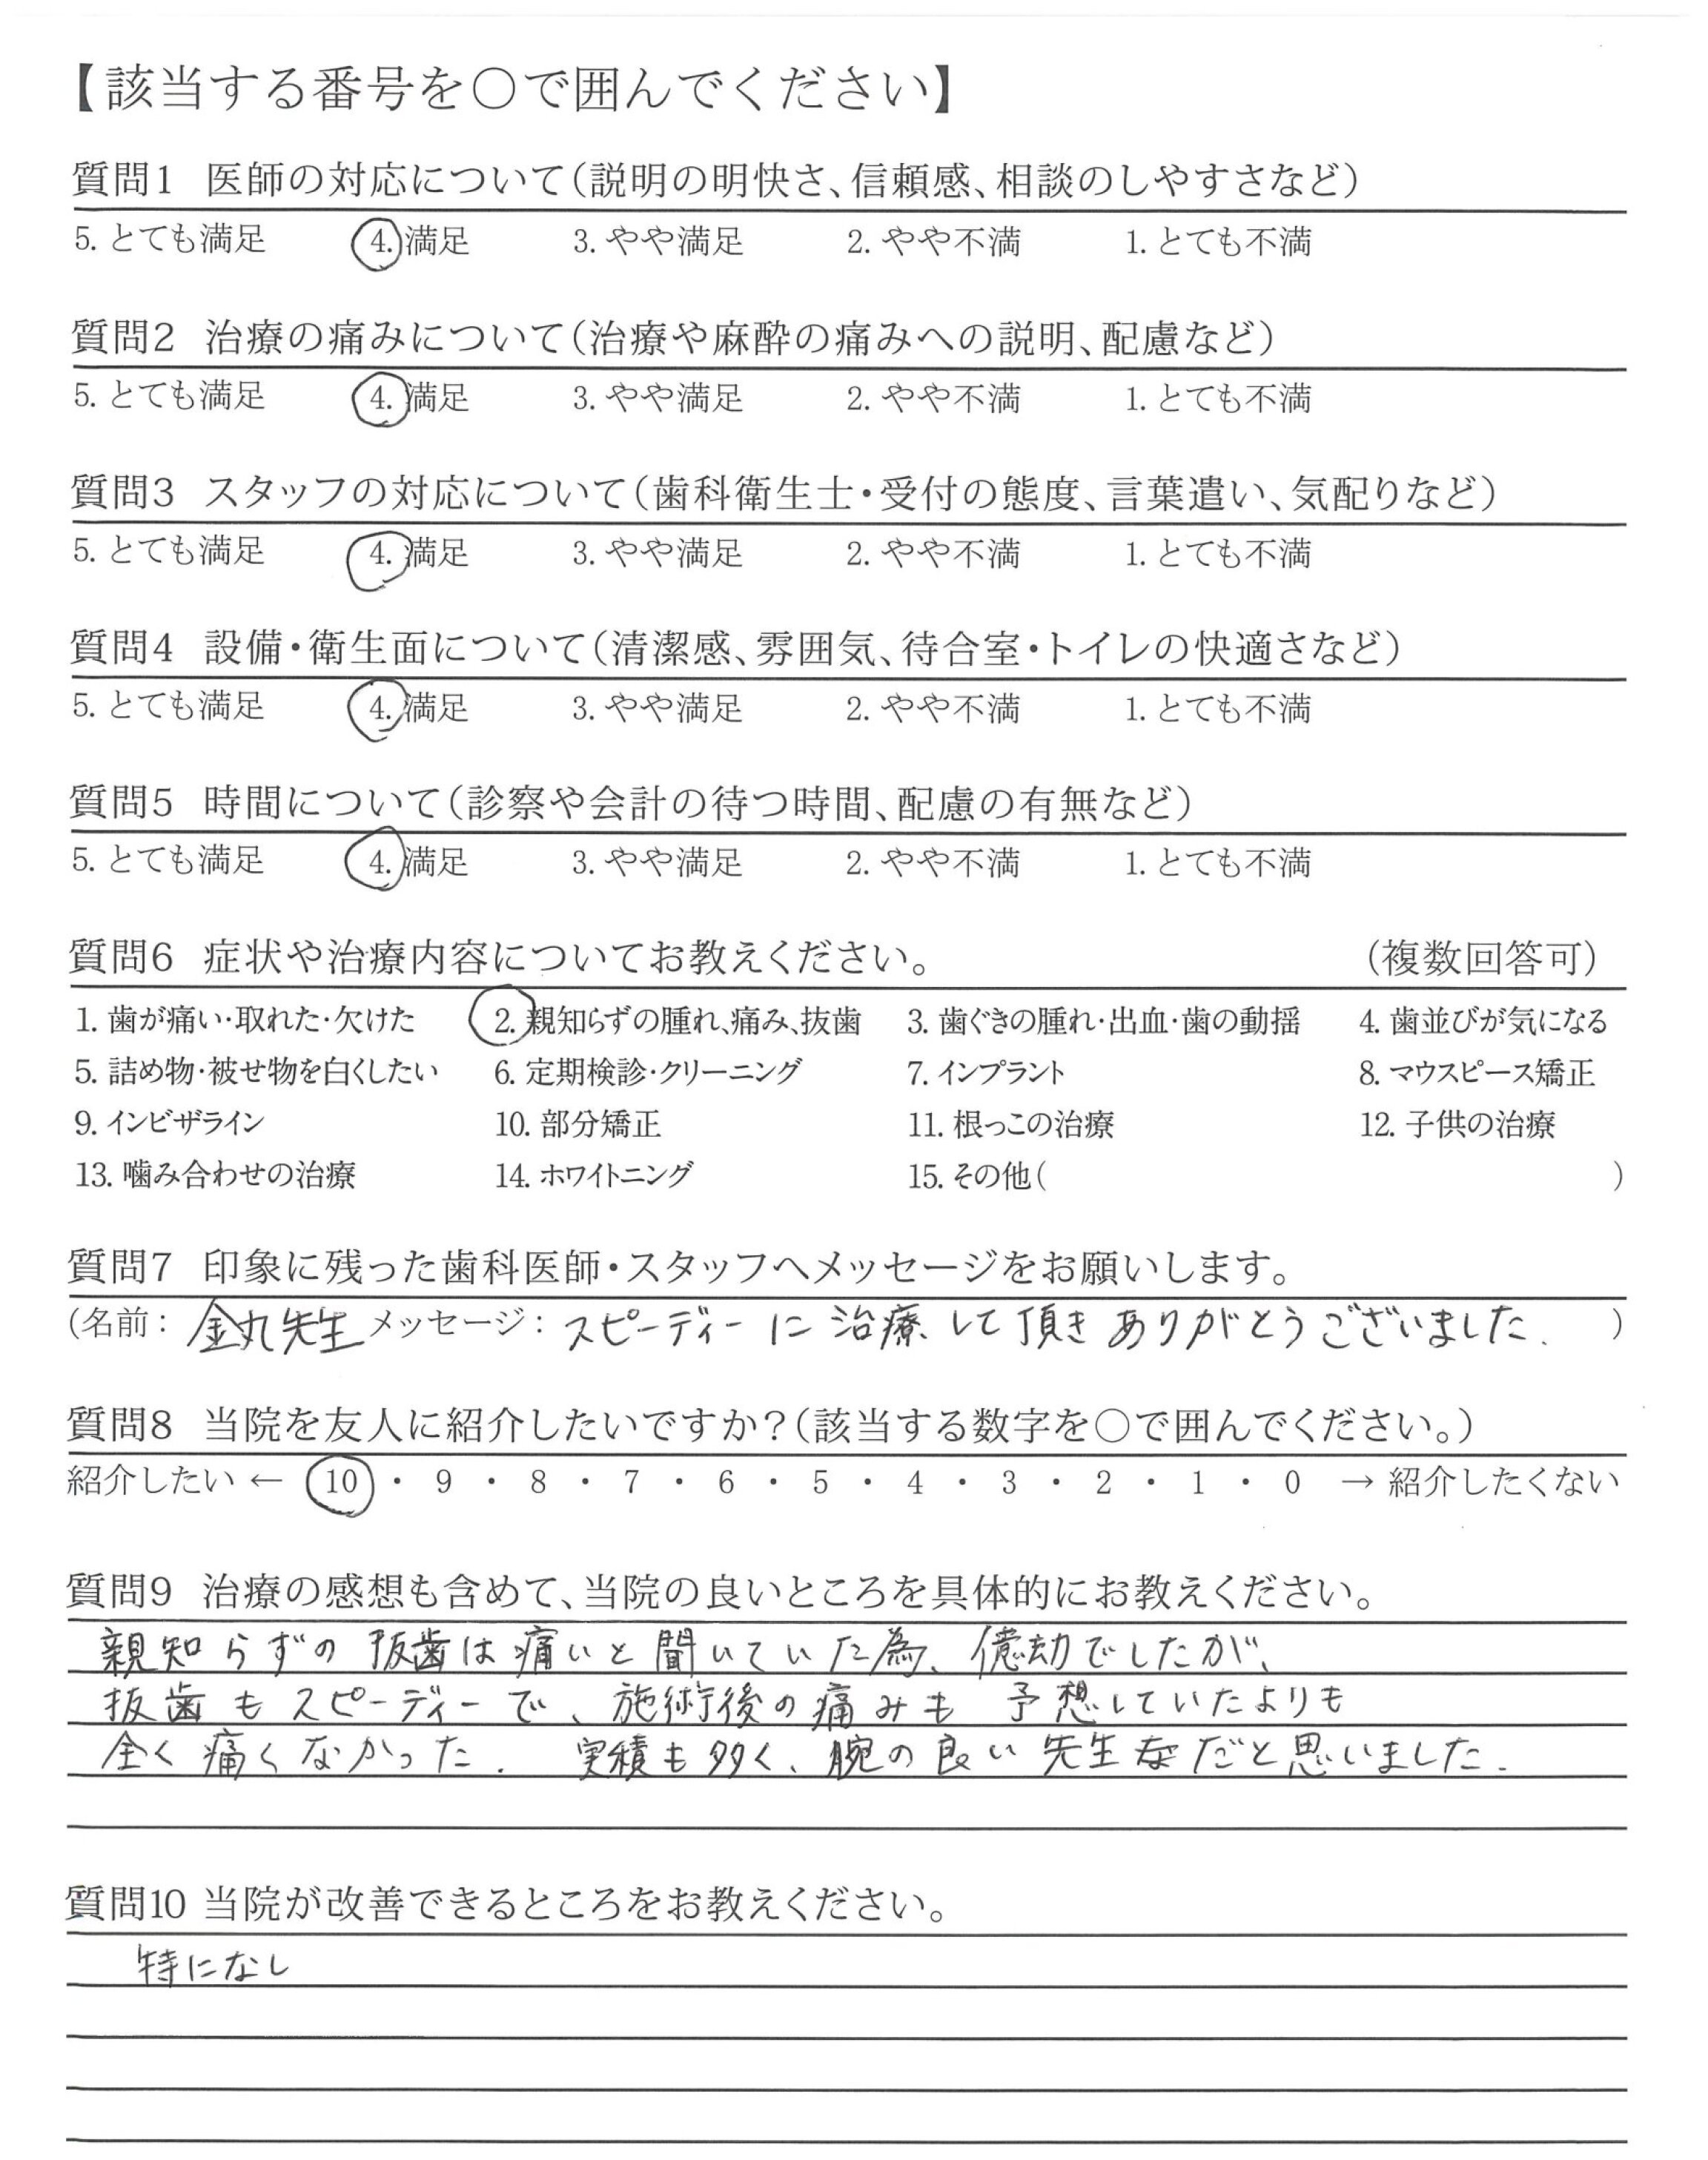 【該当する番号を○で囲んでください】
質問1 医師の対応について（説明の明快さ、信頼感、相談のしやすさなど）
5. とても満足 4. 満足 3. やや満足 2. やや不満 1. とても不満
質問2 治療の痛みについて（治療や麻酔の痛みへの説明、配慮など）
5. とても満足 4. 満足 3. やや満足 2. やや不満 1. とても不満
質問3 スタッフの対応について（歯科衛生士・受付の態度、言葉遣い、気配りなど）
5. とても満足 4. 満足 3. やや満足 2. やや不満 1. とても不満
質問4 設備・衛生面について（清潔感、雰囲気、待合室・トイレの快適さなど）
5. とても満足 4. 満足 3. やや満足 2. やや不満 1. とても不満
質問5 時間について（診察や会計の待つ時間、配慮の有無など）
5. とても満足 4. 満足 3. やや満足 2. やや不満 1. とても不満
質問6 症状や治療内容についてお教えください。 （複数回答可）
1. 歯が痛い・取れた・欠けた 2. 親知らずの腫れ、痛み、抜歯 3. 歯ぐきの腫れ・出血・歯の動揺 4. 歯並びが気になる
5. 詰め物・被せ物を白くしたい 6. 定期検診・クリーニング 7. インプラント 8. マウスピース矯正
9. インビザライン 10. 部分矯正 11. 根っこの治療 12. 子供の治療
13. 噛み合わせの治療 14. ホワイトニング 15. その他（ ）
質問7 印象に残った歯科医師・スタッフへメッセージをお願いします。
（名前： 金丸先生 メッセージ： スピーディーに治療して頂きありがとうございました. ）
質問8 当院を友人に紹介したいですか？（該当する数字を○で囲んでください。）
紹介したい ← 10 ・ 9 ・ 8 ・ 7 ・ 6 ・ 5 ・ 4 ・ 3 ・ 2 ・ 1 ・ 0 → 紹介したくない
質問9 治療の感想も含めて、当院の良いところを具体的にお教えください。
親知らずの抜歯は痛いと聞いていた為、億劫でしたが、
抜歯もスピーディーで、施術後の痛みも 予想していたよりも
全く痛くなかった. 実績も多く、腕の良い先生なだと思いました.
質問10 当院が改善できるところをお教えください。
特になし